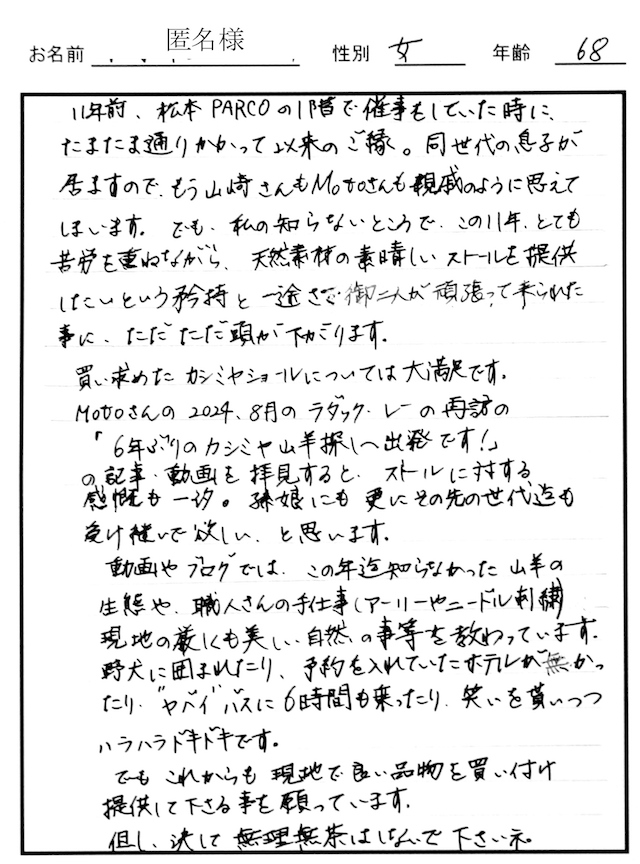 お名前 匿名様 性別 女 年齢 68
11年前、松本PARCOの1階で催事をしていた時に、
たまたま通りかかって以来のご縁。同世代の息子が
居ますので、もう山崎さんもMotoさんも親戚のように思えて
しまいます。でも、私の知らないところで、この11年、とても
苦労を重ねながら、天然素材の素晴しいストールを提供
したいという矜持と一途さで御二人が頑張って来られた
事に、ただただ頭が下がります。
買い求めたカシミヤショールについては大満足です。
Motoさんの2024、8月のラダック・レーの再訪の
「6年ぶりのカシミヤ山羊探しへ出発です!」
の記事・動画を拝見すると、ストールに対する
感慨も一汐。孫娘にも更にその先の世代迄も
受け継いで欲しい、と思います。
動画やブログでは、この年迄知らなかった山羊の
生態や、職人さんの手仕事(アーリーやニードル刺繍)
現地の厳しくも美しい自然の事等を教わっています。
野犬に囲まれたり、予約を入れていたホテルが無かっ
たり、"ヤバイ"バスに6時間も乗ったり、笑いを貰いつつ
ハラハラドキドキです。
でもこれからも現地で良い品物を買い付け
提供して下さる事を願っています。
但し、決して無理無茶はしないで下さいネ。